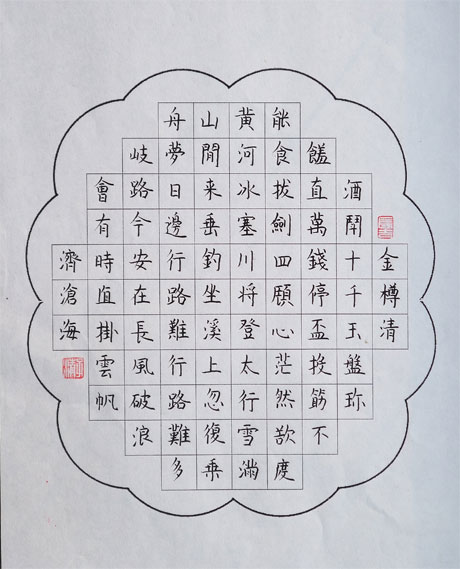 金樽清
酒鬥十千玉盤珎
饈直萬錢停盃投筯不
能食拔劍四顧心茫然欲度
黄河冰塞川将登太行雪滿
山閒来垂釣坐溪上忽復乗
舟夢日邊行路難行路難多
岐路今安在長風破浪
會有時直掛雲帆
濟滄海